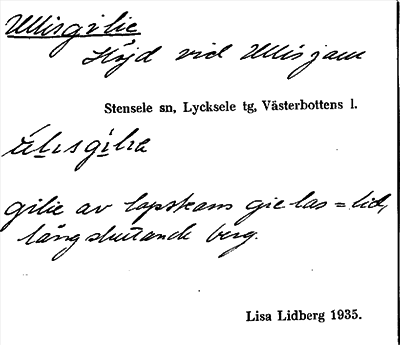 Ullisgilie,
Höjd vid Ullisjaur
Stensele sn, Lycksele tg, Västerbottens l.
gilie av lapskans gielas = lid,
långsluttande berg.
Lisa Lidberg 1935.